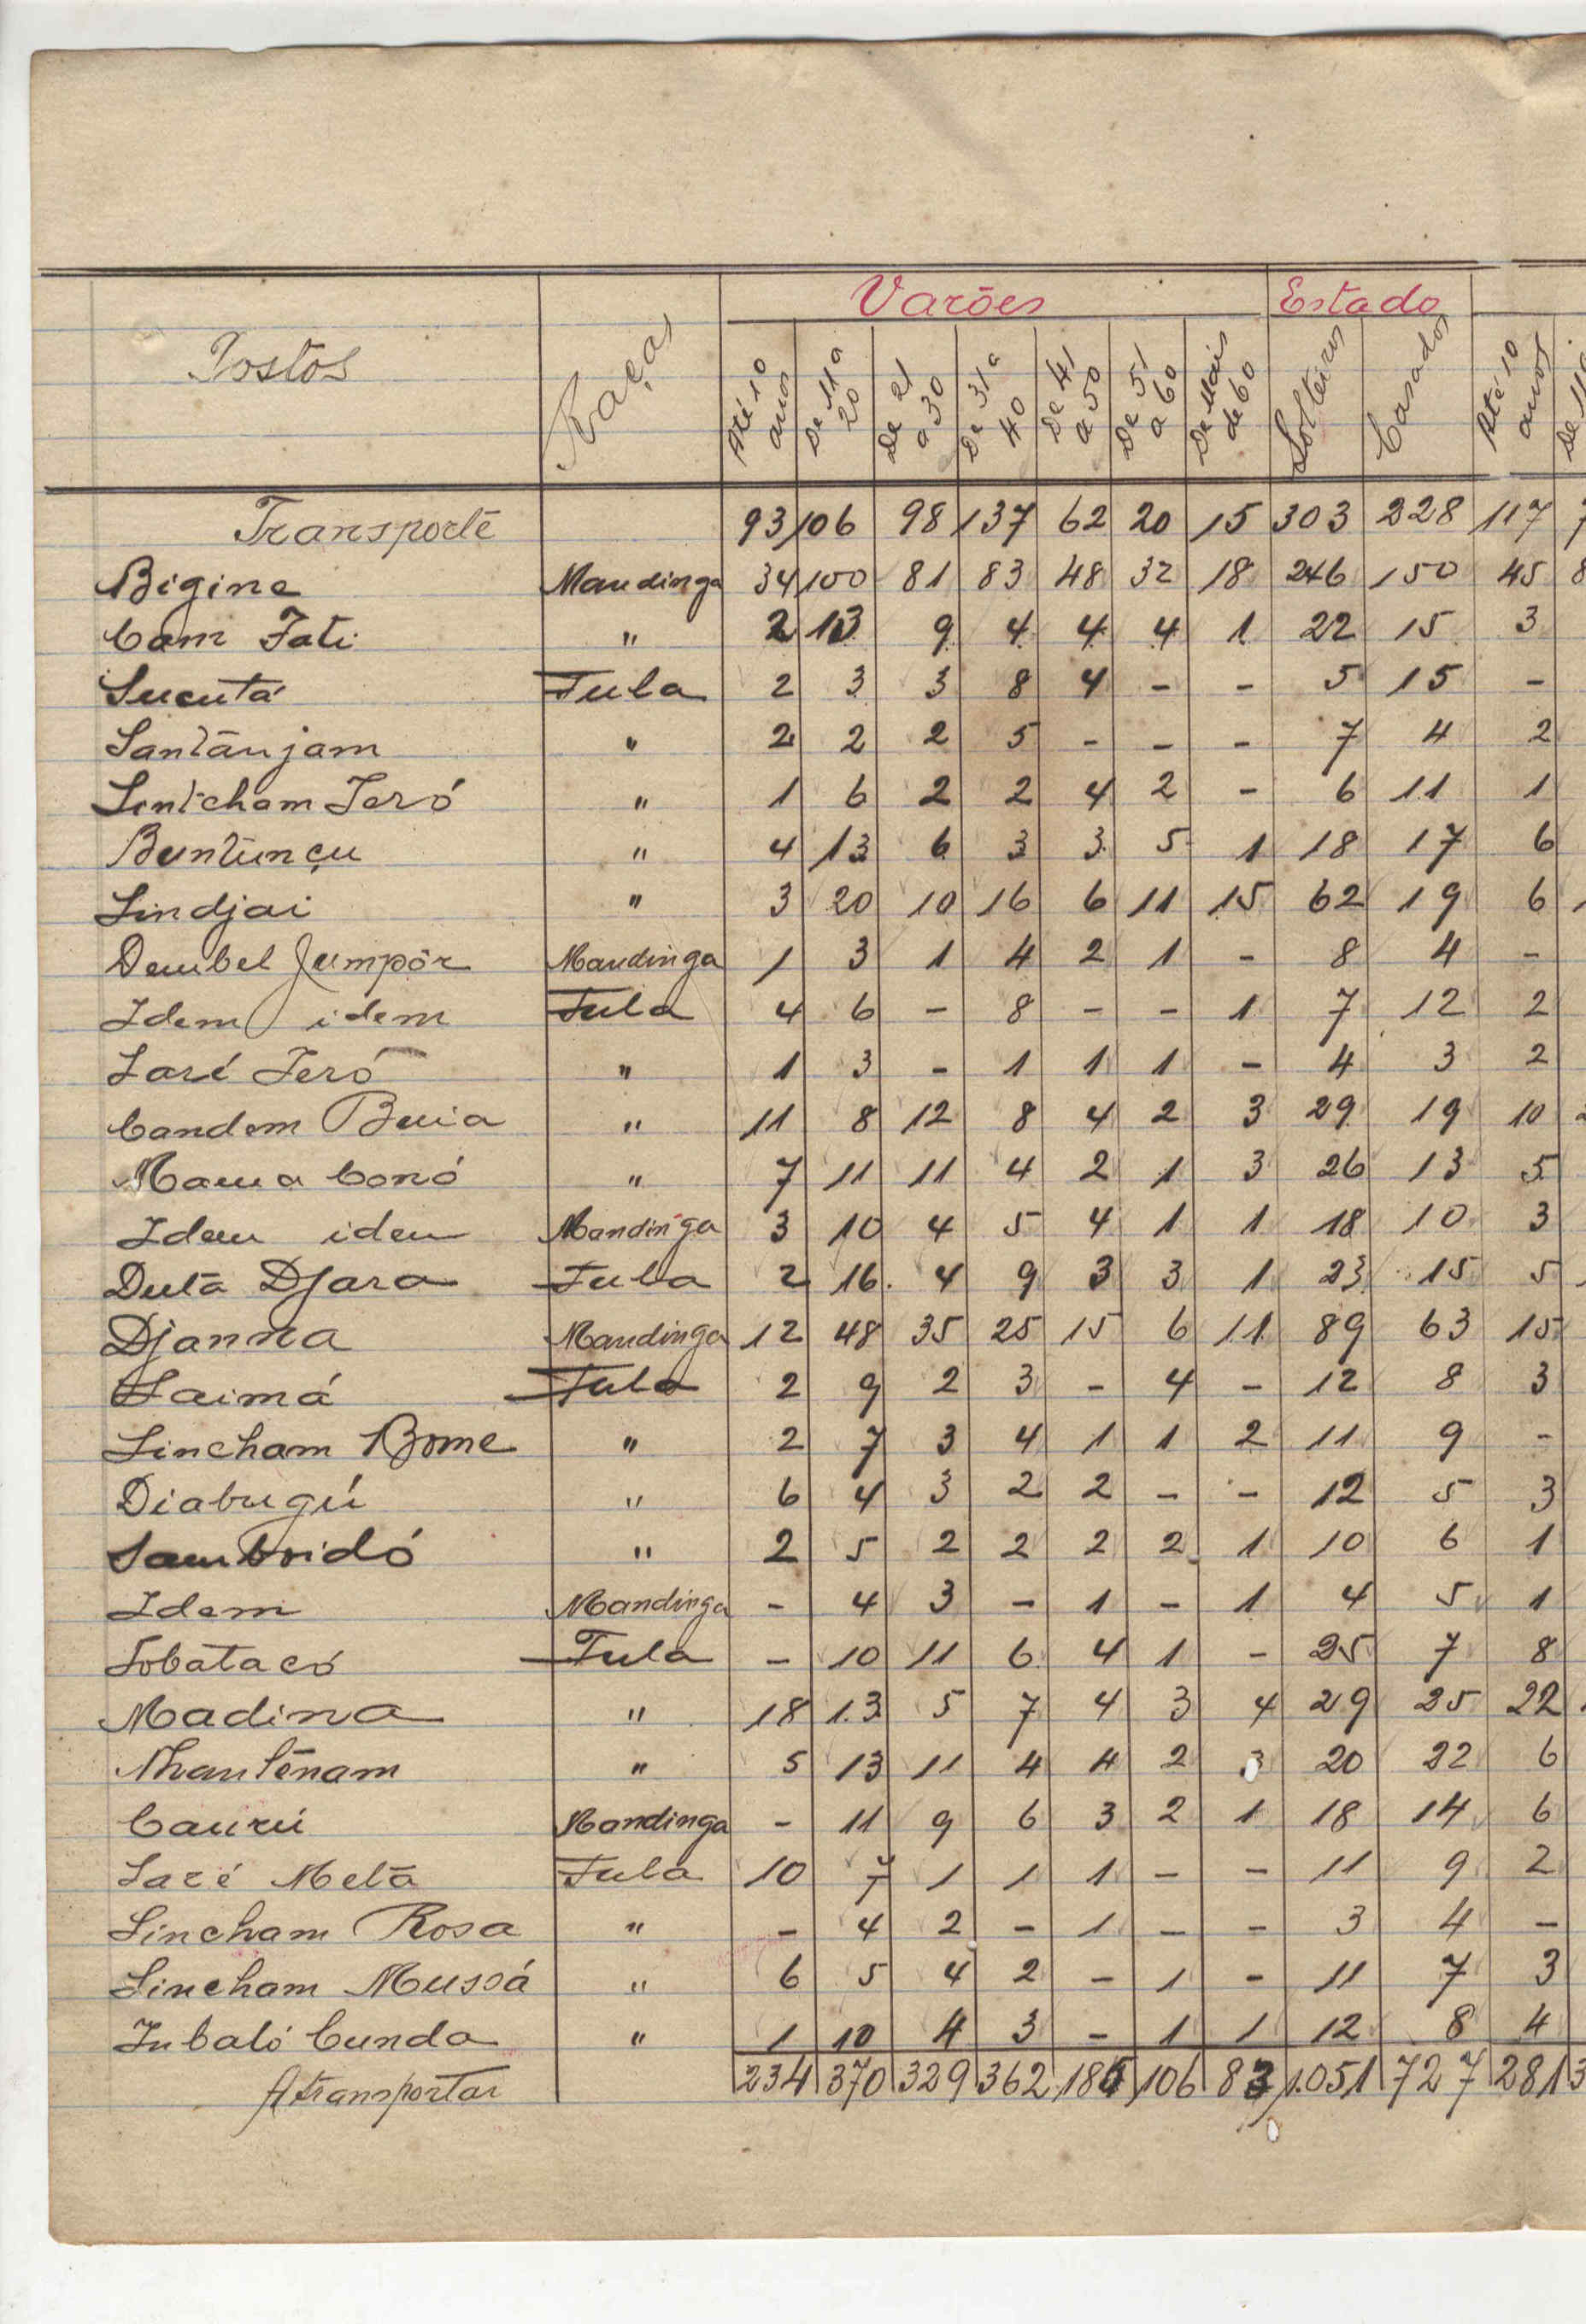 Varões Estado
Postos Raças Até 10 anos De 11 a 20 De 21 a 30 De 31 a 40 De 41 a 50 De 51 a 60 De Mais de 60 Solteiros Casados Até 10 anos De 11
Transporte 93 106 98 137 62 20 15 303 228 117 7
Bigine Mandinga 34 100 81 83 48 32 18 246 150 45 8
Cam Fati " 2 13 9 4 4 4 1 22 15 3
Sucutá Fula 2 3 3 8 4 - - 5 15 -
Santânjam " 2 2 2 5 - - - 7 4 2
Sintcham Ieró " 1 6 2 2 4 2 - 6 11 1
Buntunçu " 4 13 6 3 3 5 1 18 17 6
Sindjai " 3 20 10 16 6 11 15 62 19 6
Dembel Jumpôr Mandinga 1 3 1 4 2 1 - 8 4 -
Idem idem Fula 4 6 - 8 - - 1 7 12 2
Saré Ieró " 1 3 - 1 1 1 - 4 3 2
Candem Buia " 11 8 12 8 4 2 3 29 19 10 2
Mama Conó " 7 11 11 4 2 1 3 26 13 5
Idem idem Mandinga 3 10 4 5 4 1 1 18 10 3
Duta Djara Fula 2 16 4 9 3 3 1 23 15 5
Djanna Mandinga 12 48 35 25 15 6 11 89 63 15
Saimá Fula 2 9 2 3 - 4 - 12 8 3
Sincham Bome " 2 7 3 4 1 1 2 11 9 -
Diabugú " 6 4 3 2 2 - - 12 5 3
Samboidó " 2 5 2 2 2 2 1 10 6 1
Idem Mandinga - 4 3 - 1 - 1 4 5 1
Sobatacó Fula - 10 11 6 4 1 - 25 7 8
Madina " 18 13 5 7 4 3 4 29 25 22
Nhantênam " 5 13 11 4 4 2 3 20 22 6
Caurú Mandinga - 11 9 6 3 2 1 18 14 6
Saré Metá Fula 10 7 1 1 1 - - 11 9 2
Sincham Rosa " - 4 2 - 1 - - 3 4 -
Sincham Mussá " 6 5 4 2 - 1 - 11 7 3
Jubaló Cunda " 1 10 4 3 - 1 1 12 8 4
A transportar 234 370 329 362 186 106 83 1.051 727 281 3